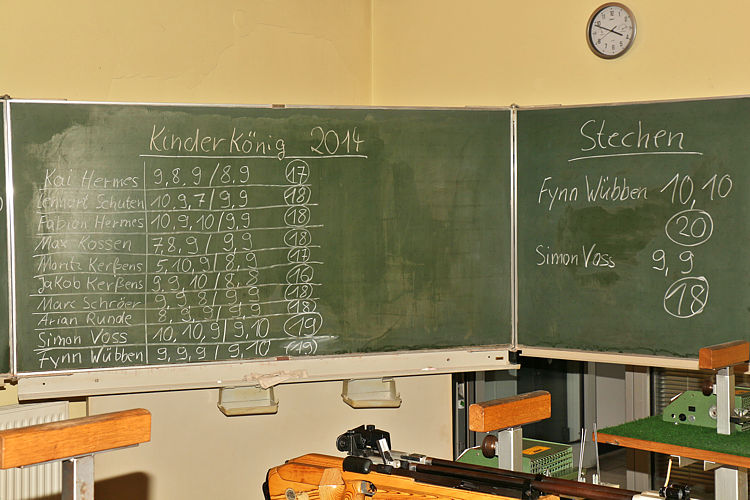 Kinderkönig 2014
Kai Hermes 9, 8, 9 / 8, 9 17
Lennart Schuten 10, 9, 7 / 9, 9 18
Fabian Hermes 10, 9, 10 / 9, 9 18
Max Kossen 7 8, 9 / 9, 9 18
Moritz Kerßens 5, 10, 9 / 8, 9 17
Jakob Kerßens 9, 9, 10 / 8, 8 16
Marc Schröer 9, 9, 8 / 9, 9 18
Arian Runde 8, 9, 9 / 9, 9 18
Simon Voss 10, 10, 9 / 9, 10 19
Fynn Wübben 9, 9, 9 / 9, 10 (19)
Stechen
Fynn Wübben 10, 10
20
Simon Voss 9, 9
18